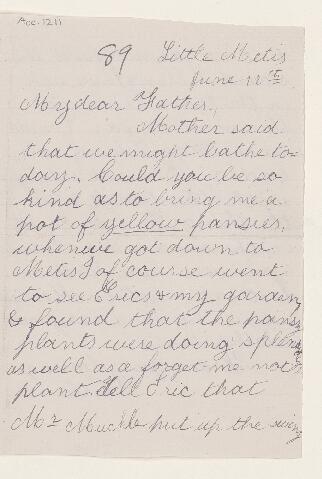 Acc. 1211
89 Little Metis
June 12th
My dear Father,
Mother said
that we might bathe to-
day. Could you be so
kind as to bring me a
pot of yellow pansies,
when we got down to
Metis I of course went
to see Erics & my garden
& found that the pansy
plants were doing splendidly
as well as a forget me not
plant. tell Eric that
Mr put up the swing